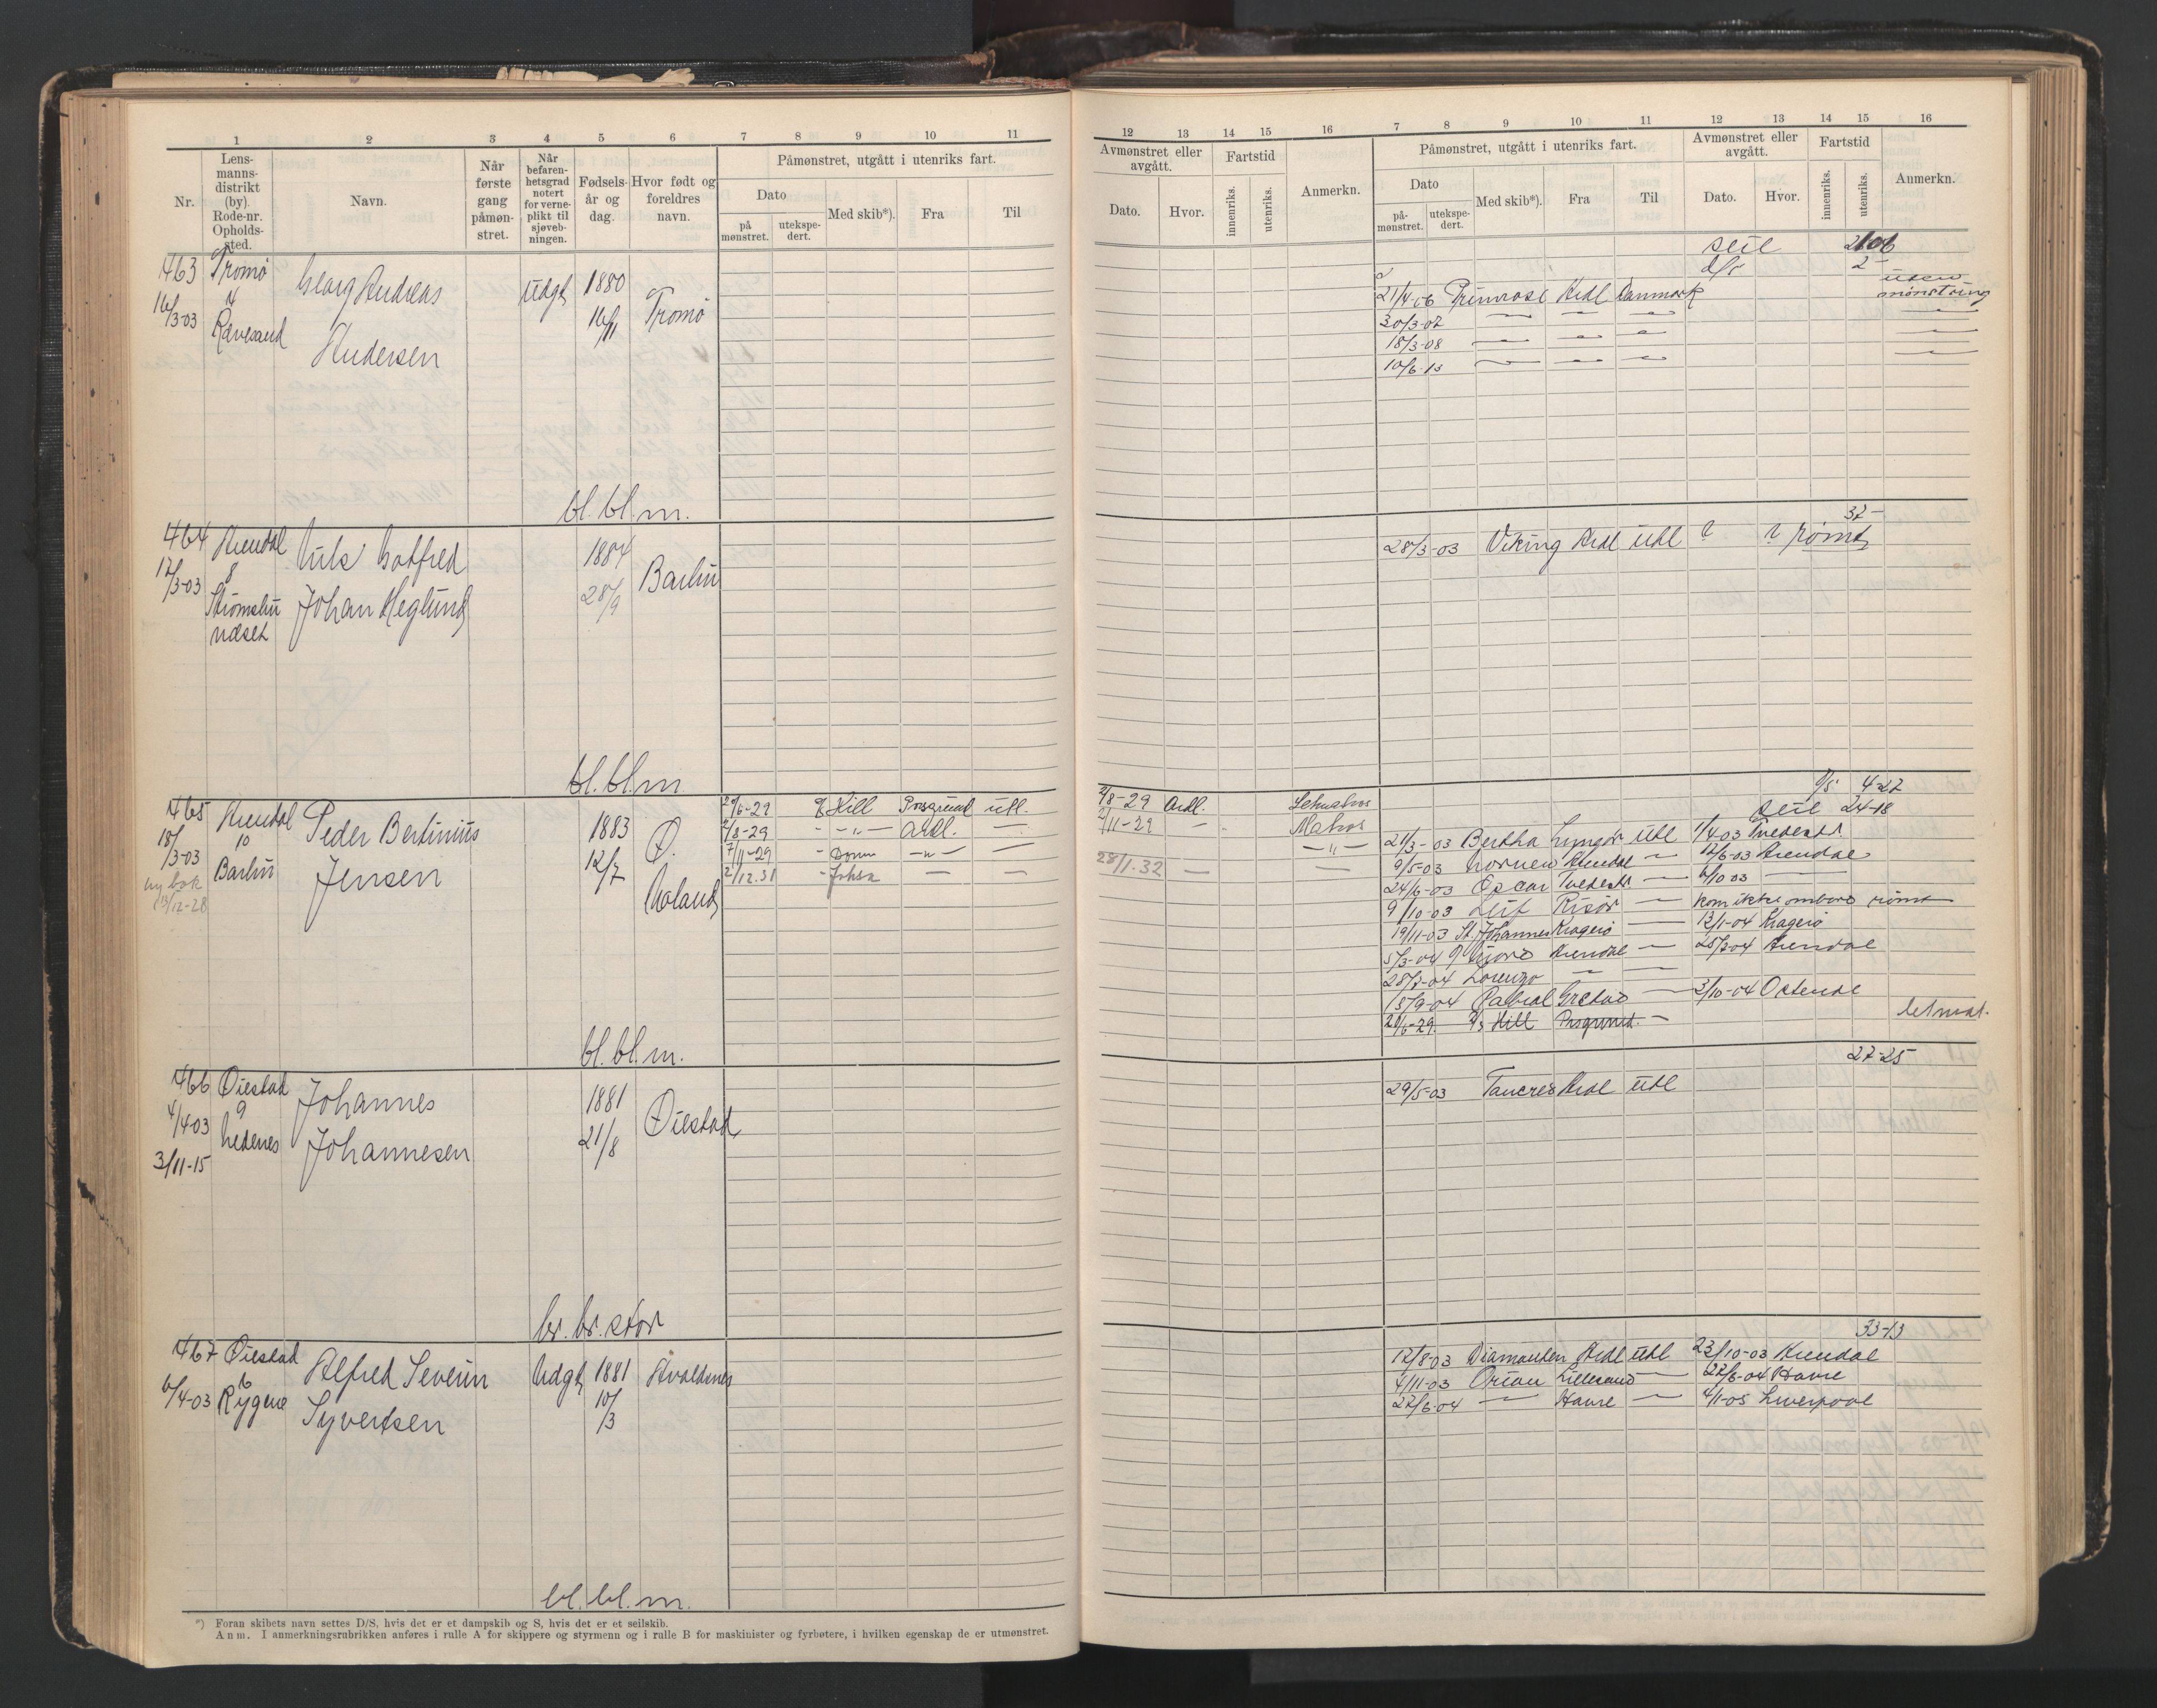 1 2 3 4 5 6 7 8 9 10 11
Nr.
Lens-
manns-
distrikt
(by).
Rode-nr.
Opholds-
sted.
Navn.
Når
første
gang
påmøn-
stret.
Når
befaren-
hetsgrad
notert
for verne-
plikt til
sjøveb-
ningen.
Fødsels-
år og
dag.
Hvor født og
foreldres
navn.
Påmønstret, utgått i utenriks fart.
Dato
på
mønstret.
utekspe-
dert.
Med skib*).
Fra
Til
463 Tromø
16/3-03 Rævesand
Georg Andreas
Andersen
Udgt
1880
16/11
Tromø
bl. bl. m.
464 Arendal
17/3-03 8
Strømsbu
Nils Gotfred
Johan Heglund
1884
28/9
Barbu
bl. bl. m
465 Arendal
18/3-03 10
Barbu
ny bok
13/12-28
Peder Bertinius
Jensen
1883
12/7
Ø.
Moland
20/6-29 Hill Porsgrund utl.
2/8-29 - " - Ardl. -
7/11-29 - - " - -
2/12.31 - - -
bl. bl. m.
466 Øiestad
4/4-03 9
3/11-15 Nedenes
Johannes
Johannesen
1881
21/8
Øiestad
br. br. stor
467 Øiestad
6/4-03 6
Rygene
Alfred Severin
Syvertsen
Udgt
1881
10/3
Avaldsnes
bl. bl. m.
*) Foran skibets navn settes D/S, hvis det er et dampskib og S, hvis det er et seilskib.
Anm. I anmerkningsrubrikken anføres i rulle A for skippere og styrmenn og i rulle B for maskinister og fyrbøtere, i hvilken egenskap de er utmønstret.
12 13 14 15 16 7 8 9 10 11 12 13 14 15 16
Avmønstret eller
avgått.
Dato.
Hvor.
Fartstid
innenriks.
utenriks.
Anmerkn.
Påmønstret, utgått i utenriks fart.
Dato
på-
mønstret.
utekspe-
dert.
Med skib*).
Fra
Til
Avmønstret eller
avgått.
Dato.
Hvor.
Fartstid
innenriks.
utenriks.
Anmerkn.
seil
d/s 2-
21/4-06 Primrose Ardl Danmark uten
mønstring
30/3-07 - - - -
18/3-08 - - - -
10/6-13 - - - -
32-
28/3-03 Viking Ardl Utl ? ? rømt
4-27
seil 24-18
2/8-29 Ardl.
7/11-29 - Matros
- " -
28/1.32 - -
21/3-03 Bertha Lyngør Utl 1/4 03 Tvedestr.
9/5-03 Nornen Arendal - 12/6-03 Arendal
24/6-03 Oscar Tvedestr - 6/10 03 -
9/10-03 Leif Risør - kom ikke ombord rømt
19/11-03 St. Johannes Kragerø - 13/1-04 Kragerø
5/3-04 Arendal - 25/7-04 Arendal
28/7-04 Lorenzo - -
15/9-04 Grstad - 3/10-04 Ostende
20/6-29 D/s Hill Prsgrund. -
27-25
29/5-03 Tancred Ardl Utl
33-13
12/8-03 Diamanten Ardl Utl 23/10-03 Arendal
4/11-03 Orion Lillesand - 22/6-04 Havre
22/6-04 - Havre - 4/1-05 Liverpool